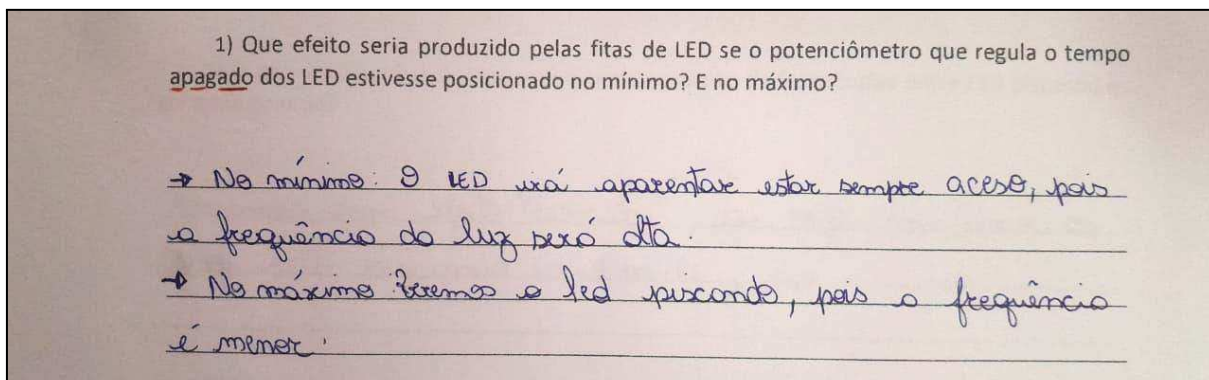 1) Que efeito seria produzido pelas fitas de LED se o potenciômetro que regula o tempo
apagado dos LED estivesse posicionado no mínimo? E no máximo?
→ No mínimo: O LED irá aparentar estar sempre aceso, pois
a frequência da luz será alta.
→ No máximo: Veremos o led piscando, pois a frequência
é menor.